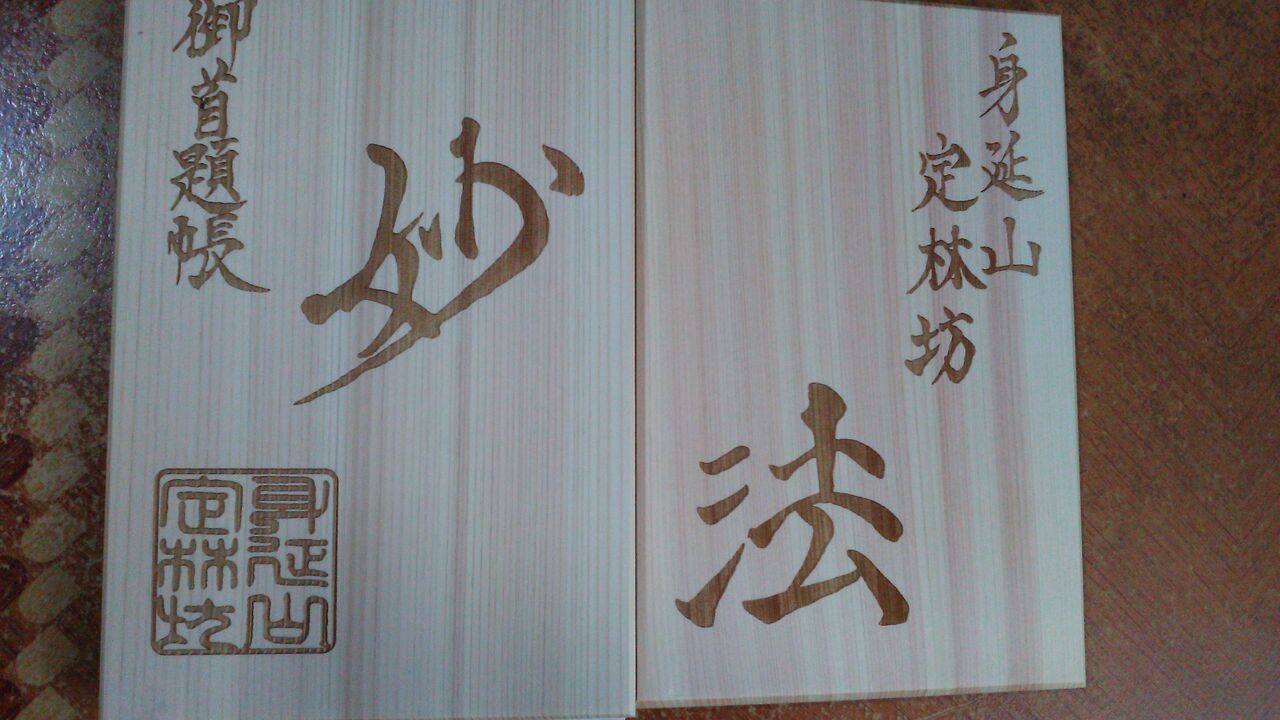 身延山
定林坊
法
妙
御首題帳
身延山
定林坊